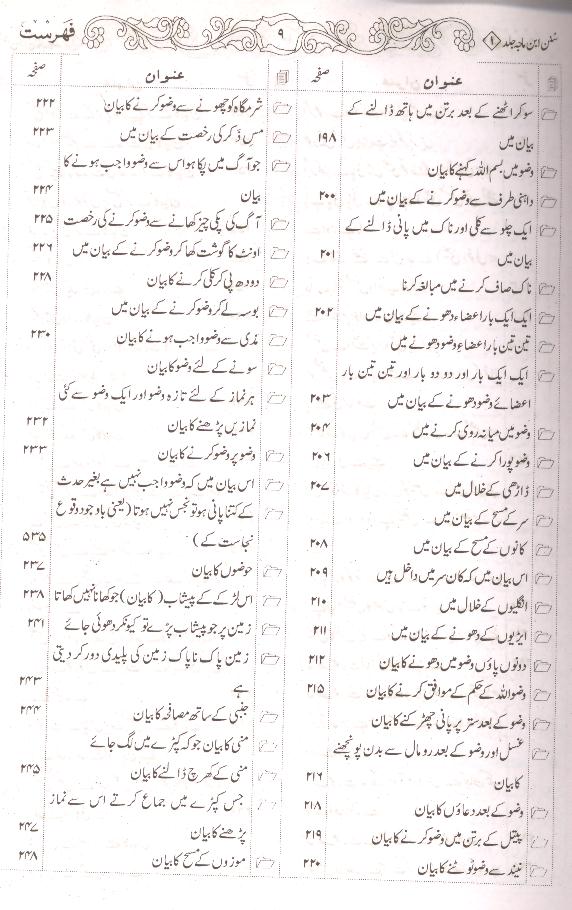 سنن ابن ماجہ جلد ۱
۹
فہرست
عنوان صفحہ
سو کر اٹھنے کے بعد برتن میں ہاتھ ڈالنے کے
بیان میں ۱۹۸
وضو میں بسم اللہ کہنے کا بیان
داہنی طرف سے وضو کرنے کے بیان میں ۲۰۰
ایک چلو سے کلی اور ناک میں پانی ڈالنے کے
بیان میں ۲۰۱
ناک صاف کرنے میں مبالغہ کرنا
ایک ایک بار اعضاء دھونے کے بیان میں ۲۰۲
تین تین بار اعضاءِ وضو دھونے میں
ایک ایک بار اور دو دو بار اور تین تین بار
اعضائے وضو دھونے کے بیان میں ۲۰۳
وضو میں میانہ روی کرنے میں ۲۰۴
وضو پورا کرنے کے بیان میں ۲۰۶
ڈاڑھی کے خلال میں ۲۰۷
سر کے مسح کے بیان میں
کانوں کے مسح کے بیان میں ۲۰۸
اس بیان میں کہ کان سر میں داخل ہیں ۲۰۹
انگلیوں کے خلال میں ۲۱۰
ایڑیوں کے دھونے کے بیان میں ۲۱۱
دونوں پاؤں وضو میں دھونے کا بیان ۲۱۲
وضو اللہ کے حکم کے موافق کرنے کا بیان ۲۱۵
وضو کے بعد ستر پر پانی چھڑکنے کا بیان
غسل اور وضو کے بعد رومال سے بدن پونچھنے
کا بیان ۲۱۶
وضو کے بعد دعاؤں کا بیان ۲۱۸
پیتل کے برتن میں وضو کرنے کا بیان ۲۱۹
نیند سے وضو ٹوٹنے کا بیان ۲۲۰
عنوان صفحہ
شرمگاہ کو چھونے سے وضو کرنے کا بیان ۲۲۲
مسِ ذَکر کی رخصت کے بیان میں ۲۲۳
جو آگ میں پکا ہو اس سے وضو واجب ہونے کا
بیان ۲۲۴
آگ کی پکی چیز کھانے سے وضو کرنے کی رخصت ۲۲۵
اونٹ کا گوشت کھا کر وضو کرنے کے بیان میں ۲۲۶
دودھ پی کر کلی کرنے کا بیان ۲۲۸
بوسہ لے کر وضو کرنے کے بیان میں
مذی سے وضو واجب ہونے کا بیان ۲۳۰
سونے کے لئے وضو کا بیان
ہر نماز کے لئے تازہ وضو اور ایک وضو سے کئی
نمازیں پڑھنے کا بیان ۲۳۲
وضو پر وضو کرنے کا بیان ۲۳۳
اس بیان میں کہ وضو واجب نہیں ہے بغیر حدث
کے کتنا پانی ہو تو نجس نہیں ہوتا (یعنی باوجود وقوع
نجاست کے) ۵۳۵
حوضوں کا بیان ۲۳۷
اس لڑکے کے پیشاب (کا بیان) جو کھانا نہیں کھاتا ۲۳۸
زمین پر جو پیشاب پڑے تو کیونکر دھوئی جائے ۲۴۱
زمین پاک ناپاک زمین کی پلیدی دور کر دیتی
ہے ۲۴۳
جنبی کے ساتھ مصافحہ کا بیان ۲۴۴
منی کا بیان جو کہ کپڑے میں لگ جائے
منی کے کھرچ ڈالنے کا بیان ۲۴۵
جس کپڑے میں جماع کرتے اس سے نماز
پڑھنے کا بیان ۲۴۷
موزوں کے مسح کا بیان ۲۴۸